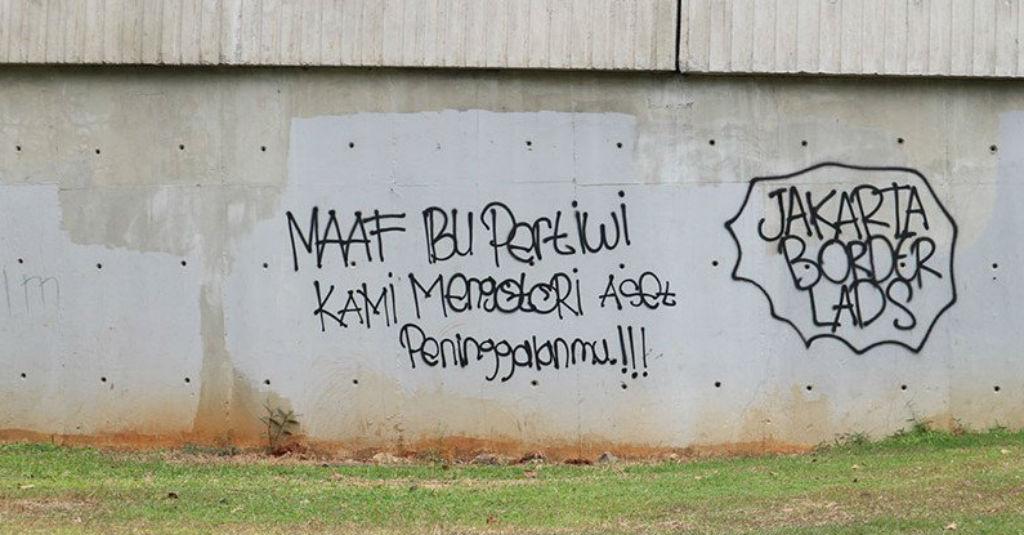 MAAF IBU PERTIWI
KAMI MENGOTORI ASET
Peninggalanmu.!!!
JAKARTA
BORDER
LADS